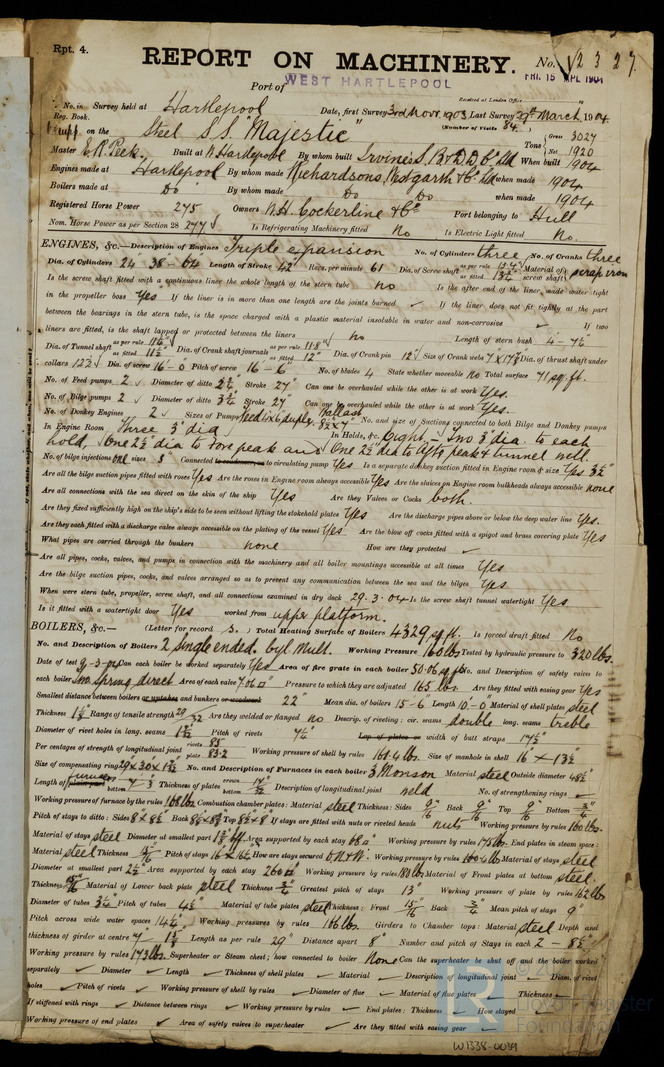 Rpt. 4.
REPORT ON MACHINERY.
No. 12327
Port of WEST HARTLEPOOL
FRI. 15 APL 1904
Received at London Office
No. in Survey held at Hartlepool Date, first Survey 3rd Novr. 1903 Last Survey 29th March 1904
Reg. Book. (Number of Visits 84)
on the Steel S.S. "Majestic"
Tons Gross 3027 Net 1920
Master E.R. Peek. Built at W. Hartlepool By whom built Irvine's S.B. & D.D. Co. Ltd When built 1904
Engines made at Hartlepool By whom made Richardsons, Westgarth & Co. Ltd when made 1904
Boilers made at Do By whom made Do Do when made 1904
Registered Horse Power 275 Owners W.H. Cockerline & Co Port belonging to Hull
Nom. Horse Power as per Section 28 277 Is Refrigerating Machinery fitted No Is Electric Light fitted No.
ENGINES, &c.—Description of Engines Triple expansion No. of Cylinders three No. of Cranks three
Dia. of Cylinders 24" 38" - 64 Length of Stroke 42" Revs. per minute 61 Dia. of Screw shaft as per rule as fitted 13¼" Material of screw shaft scrap iron
Is the screw shaft fitted with a continuous liner the whole length of the stern tube no Is the after end of the liner made water tight
in the propeller boss Yes If the liner is in more than one length are the joints burned ✓ If the liner does not fit tightly at the part
between the bearings in the stern tube, is the space charged with a plastic material insoluble in water and non-corrosive ✓ If two
liners are fitted, is the shaft lapped or protected between the liners no Length of stern bush 4 - 7½
Dia. of Tunnel shaft as per rule as fitted 11½" Dia. of Crank shaft journals as per rule 11.8" as fitted 12" Dia. of Crank pin 12 Size of Crank webs Dia. of thrust shaft under
collars 12¼ Dia. of screw 16-0 Pitch of screw 16-6" No. of blades 4 State whether moveable no Total surface 71 sq. ft.
No. of Feed pumps 2 ✓ Diameter of ditto Stroke 27" Can one be overhauled while the other is at work Yes.
No. of Bilge pumps 2 ✓ Diameter of ditto Stroke 27" Can one be overhauled while the other is at work Yes.
No. of Donkey Engines 2 ✓ Sizes of Pumps Feed 6 x 6 duplx Ballast No. and size of Suctions connected to both Bilge and Donkey pumps
In Engine Room Three 3" dia. In Holds, &c. Eight, - Two 3" dia. to each
hold. One 2½" dia to Fore peak and One 2½" dia to Afts peak & tunnel well.
No. of bilge injections one sizes 5" Connected to condenser, or to circulating pump Yes Is a separate donkey suction fitted in Engine room & size Yes 3½"
Are all the bilge suction pipes fitted with roses Yes Are the roses in Engine room always accessible Yes Are the sluices on Engine room bulkheads always accessible none
Are all connections with the sea direct on the skin of the ship Yes Are they Valves or Cocks both.
Are they fixed sufficiently high on the ship's side to be seen without lifting the stokehold plates Yes Are the discharge pipes above or below the deep water line Yes.
Are they each fitted with a discharge valve always accessible on the plating of the vessel Yes Are the blow off cocks fitted with a spigot and brass covering plate Yes
What pipes are carried through the bunkers none How are they protected ✓
Are all pipes, cocks, valves, and pumps in connection with the machinery and all boiler mountings accessible at all times Yes
Are the bilge suction pipes, cocks, and valves arranged so as to prevent any communication between the sea and the bilges Yes
When were stern tube, propeller, screw shaft, and all connections examined in dry dock 29.3.04 Is the screw shaft tunnel watertight Yes
Is it fitted with a watertight door Yes worked from upper platform.
BOILERS, &c.— (Letter for record S.) Total Heating Surface of Boilers 4329 sq. ft. Is forced draft fitted No
No. and Description of Boilers 2 Single ended. Cyl. Mult. Working Pressure 160 lbs Tested by hydraulic pressure to 320 lbs.
Date of test 9-3-04 Can each boiler be worked separately Yes Area of fire grate in each boiler 50.06 sq ft No. and Description of safety valves to
each boiler Two Spring direct Area of each valve 7.06 □" Pressure to which they are adjusted 165 lbs. Are they fitted with easing gear Yes
Smallest distance between boilers or uptakes and bunkers or woodwork 22" Mean dia. of boilers 15-6 Length 10-0 Material of shell plates steel
Thickness Range of tensile strength 29/32 Are they welded or flanged no Descrip. of riveting: cir. seams double long. seams treble
Diameter of rivet holes in long. seams Pitch of rivets Lap of plates or width of butt straps 17½"
Per centages of strength of longitudinal joint rivets 85 plate 83.2 Working pressure of shell by rules 161.4 lbs. Size of manhole in shell 16 x 13½
Size of compensating ring 29 x 30 x 1½ No. and Description of Furnaces in each boiler 3 Morison Material steel Outside diameter 48½"
Length of furnaces Thickness of plates crown bottom Description of longitudinal joint weld No. of strengthening rings ✓
Working pressure of furnace by the rules 168 lbs Combustion chamber plates: Material steel Thickness: Sides 9/16 Back 9/16 Top 9/16 Bottom 3/4
Pitch of stays to ditto: Sides 8 x 8½ Back Top If stays are fitted with nuts or riveted heads nuts Working pressure by rules 160 lbs.
Material of stays steel Diameter at smallest part Area supported by each stay 68 □" Working pressure by rules 175 lbs End plates in steam space:
Material steel Thickness 15/16 Pitch of stays 16 x How are stays secured D.N. & W. Working pressure by rules Material of stays steel
Diameter at smallest part Area supported by each stay 260 □" Working pressure by rules 181 lbs Material of Front plates at bottom steel
Thickness 15/16 Material of Lower back plate steel Thickness 3/4 Greatest pitch of stays 13" Working pressure of plate by rules 162 lbs
Diameter of tubes 3¼ Pitch of tubes 4½" Material of tube plates steel Thickness: Front 15/16 Back 3/4 Mean pitch of stays 9"
Pitch across wide water spaces 14½" Working pressures by rules 166 lbs Girders to Chamber tops: Material steel Depth and
thickness of girder at centre Length as per rule 29" Distance apart 8" Number and pitch of Stays in each 2 - 8½"
Working pressure by rules 173 lbs. Superheater or Steam chest; how connected to boiler None Can the superheater be shut off and the boiler worked
separately ✓ Diameter ✓ Length ✓ Thickness of shell plates ✓ Material ✓ Description of longitudinal joint ✓ Diam. of rivet
holes ✓ Pitch of rivets ✓ Working pressure of shell by rules ✓ Diameter of flue ✓ Material of flue plates ✓ Thickness ✓
If stiffened with rings ✓ Distance between rings ✓ Working pressure by rules ✓ End plates: Thickness ✓ How stayed ✓
Working pressure of end plates ✓ Area of safety valves to superheater ✓ Are they fitted with easing gear ✓
Lloyd's Register
Foundation
W1338-0039